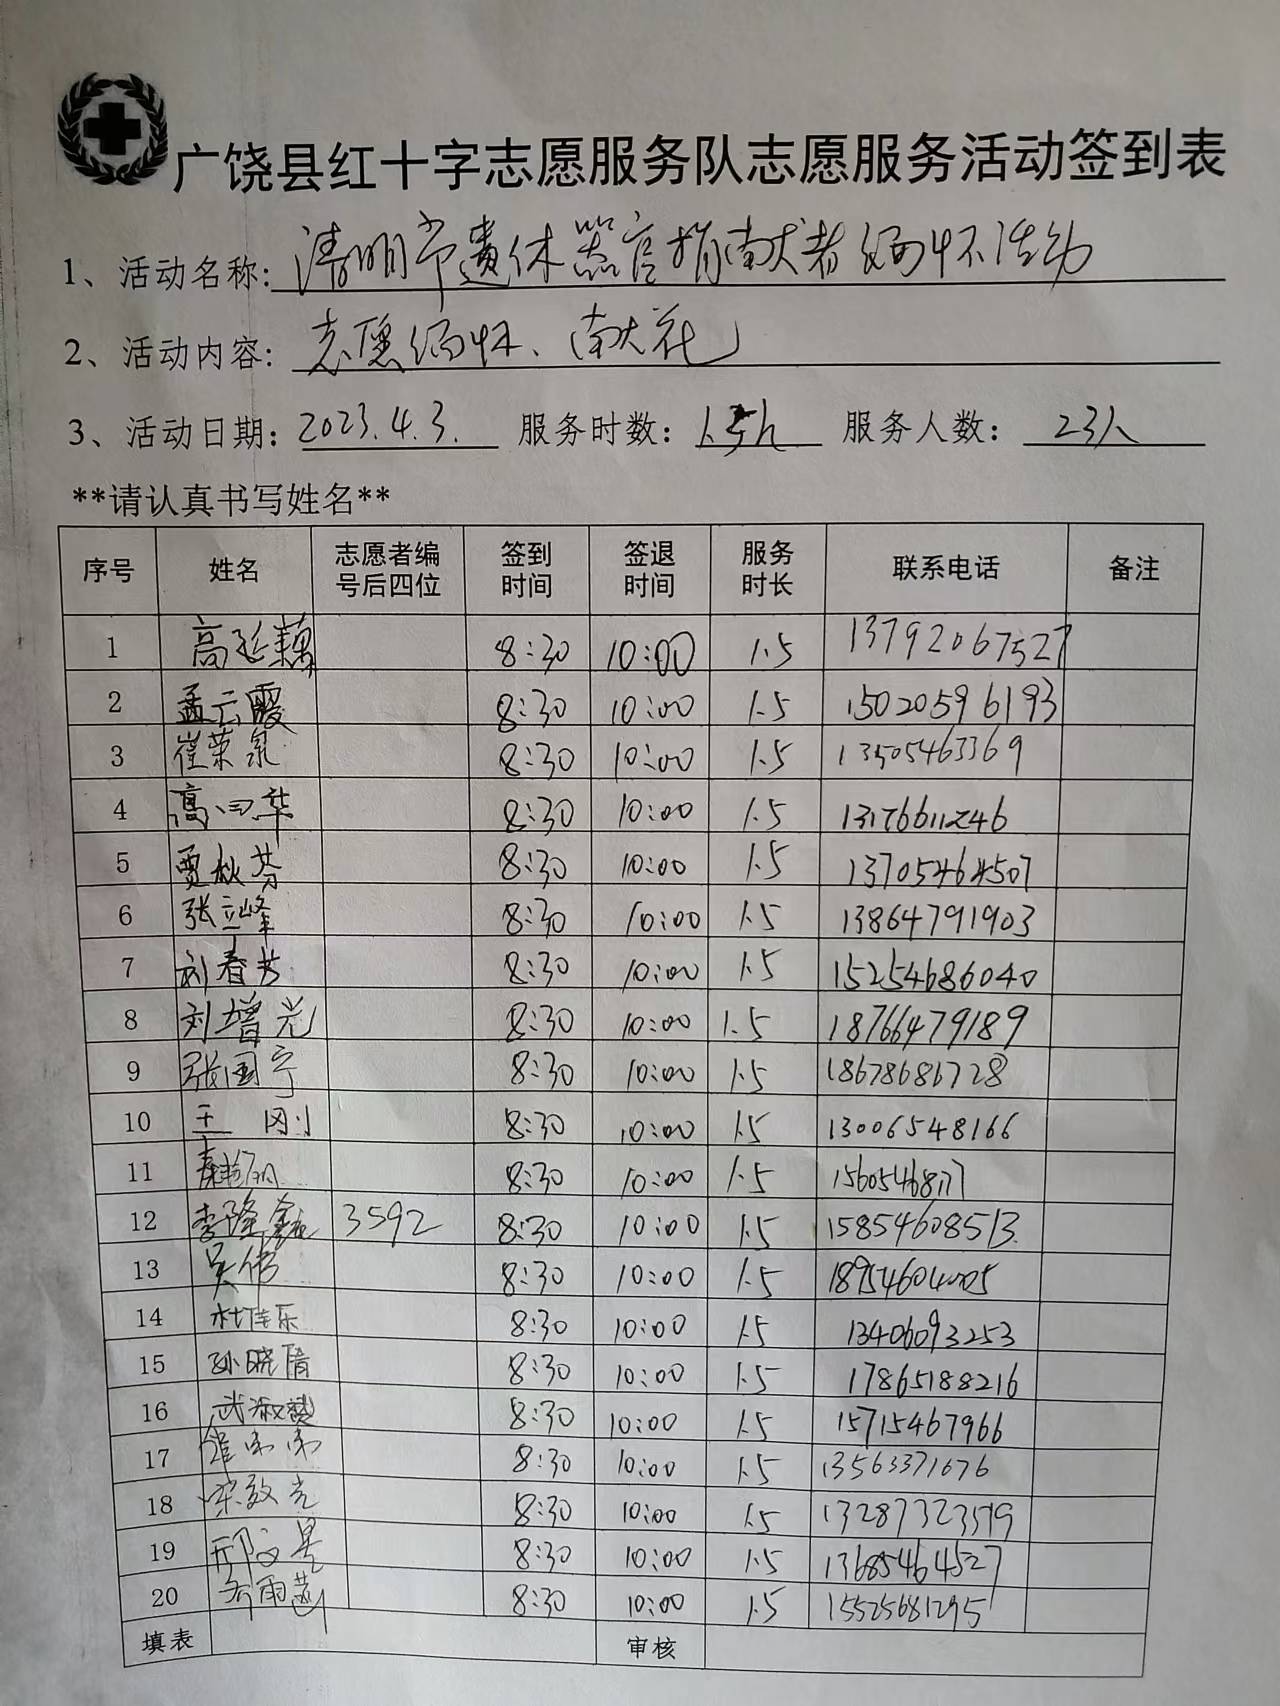 广饶县红十字志愿服务队志愿服务活动签到表
1、活动名称: 清明节遗体器官捐献者缅怀活动
2、活动内容: 志愿缅怀、献花
3、活动日期: 2023.4.3. 服务时数: 1.5h 服务人数: 23人
**请认真书写姓名**
序号 姓名 志愿者编号后四位 签到时间 签退时间 服务时长 联系电话 备注
1 高延藕 8:30 10:00 1.5 13792067527
2 孟云霞 8:30 10:00 1.5 15020596193
3 崔荣泉 8:30 10:00 1.5 13505463369
4 高曰华 8:30 10:00 1.5 13176611246
5 贾秋芬 8:30 10:00 1.5 13705464507
6 张立峰 8:30 10:00 1.5 13864791903
7 刘春芳 8:30 10:00 1.5 15254686040
8 刘增光 8:30 10:00 1.5 18766479189
9 张国宁 8:30 10:00 1.5 18678686728
10 王刚 8:30 10:00 1.5 13006548166
11 8:30 10:00 1.5
12 李隆鑫 3592 8:30 10:00 1.5 15854608513
13 吴伟 8:30 10:00 1.5
14 杜佳乐 8:30 10:00 1.5 13406093253
15 孙晓倩 8:30 10:00 1.5 17865188216
16 武淑赞 8:30 10:00 1.5 15715467966
17 8:30 10:00 1.5 13563371676
18 宋致克 8:30 10:00 1.5 13287323519
19 邢文昊 8:30 10:00 1.5 13685464527
20 8:30 10:00 1.5 15525681295
填表 审核